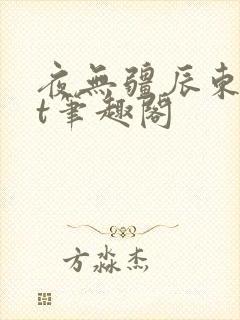 夜無疆辰東
t筆趣閣
方淼杰